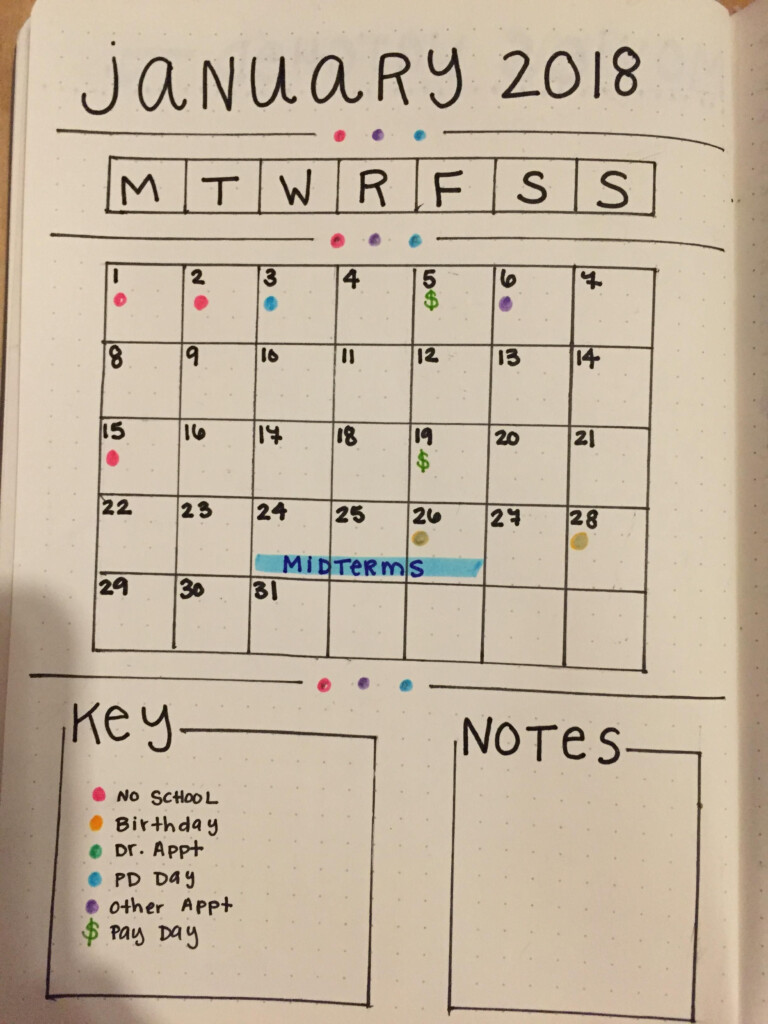 JANUARY 2018
M T W R F S S
1 2 3 4 5 6 7
$
8 9 10 11 12 13 14
15 16 17 18 19 20 21
$
22 23 24 25 26 27 28
MIDTERMS
29 30 31
Key NOTES
NO SCHOOL
Birthday
Dr. Appt
PD Day
Other Appt
$ Pay Day